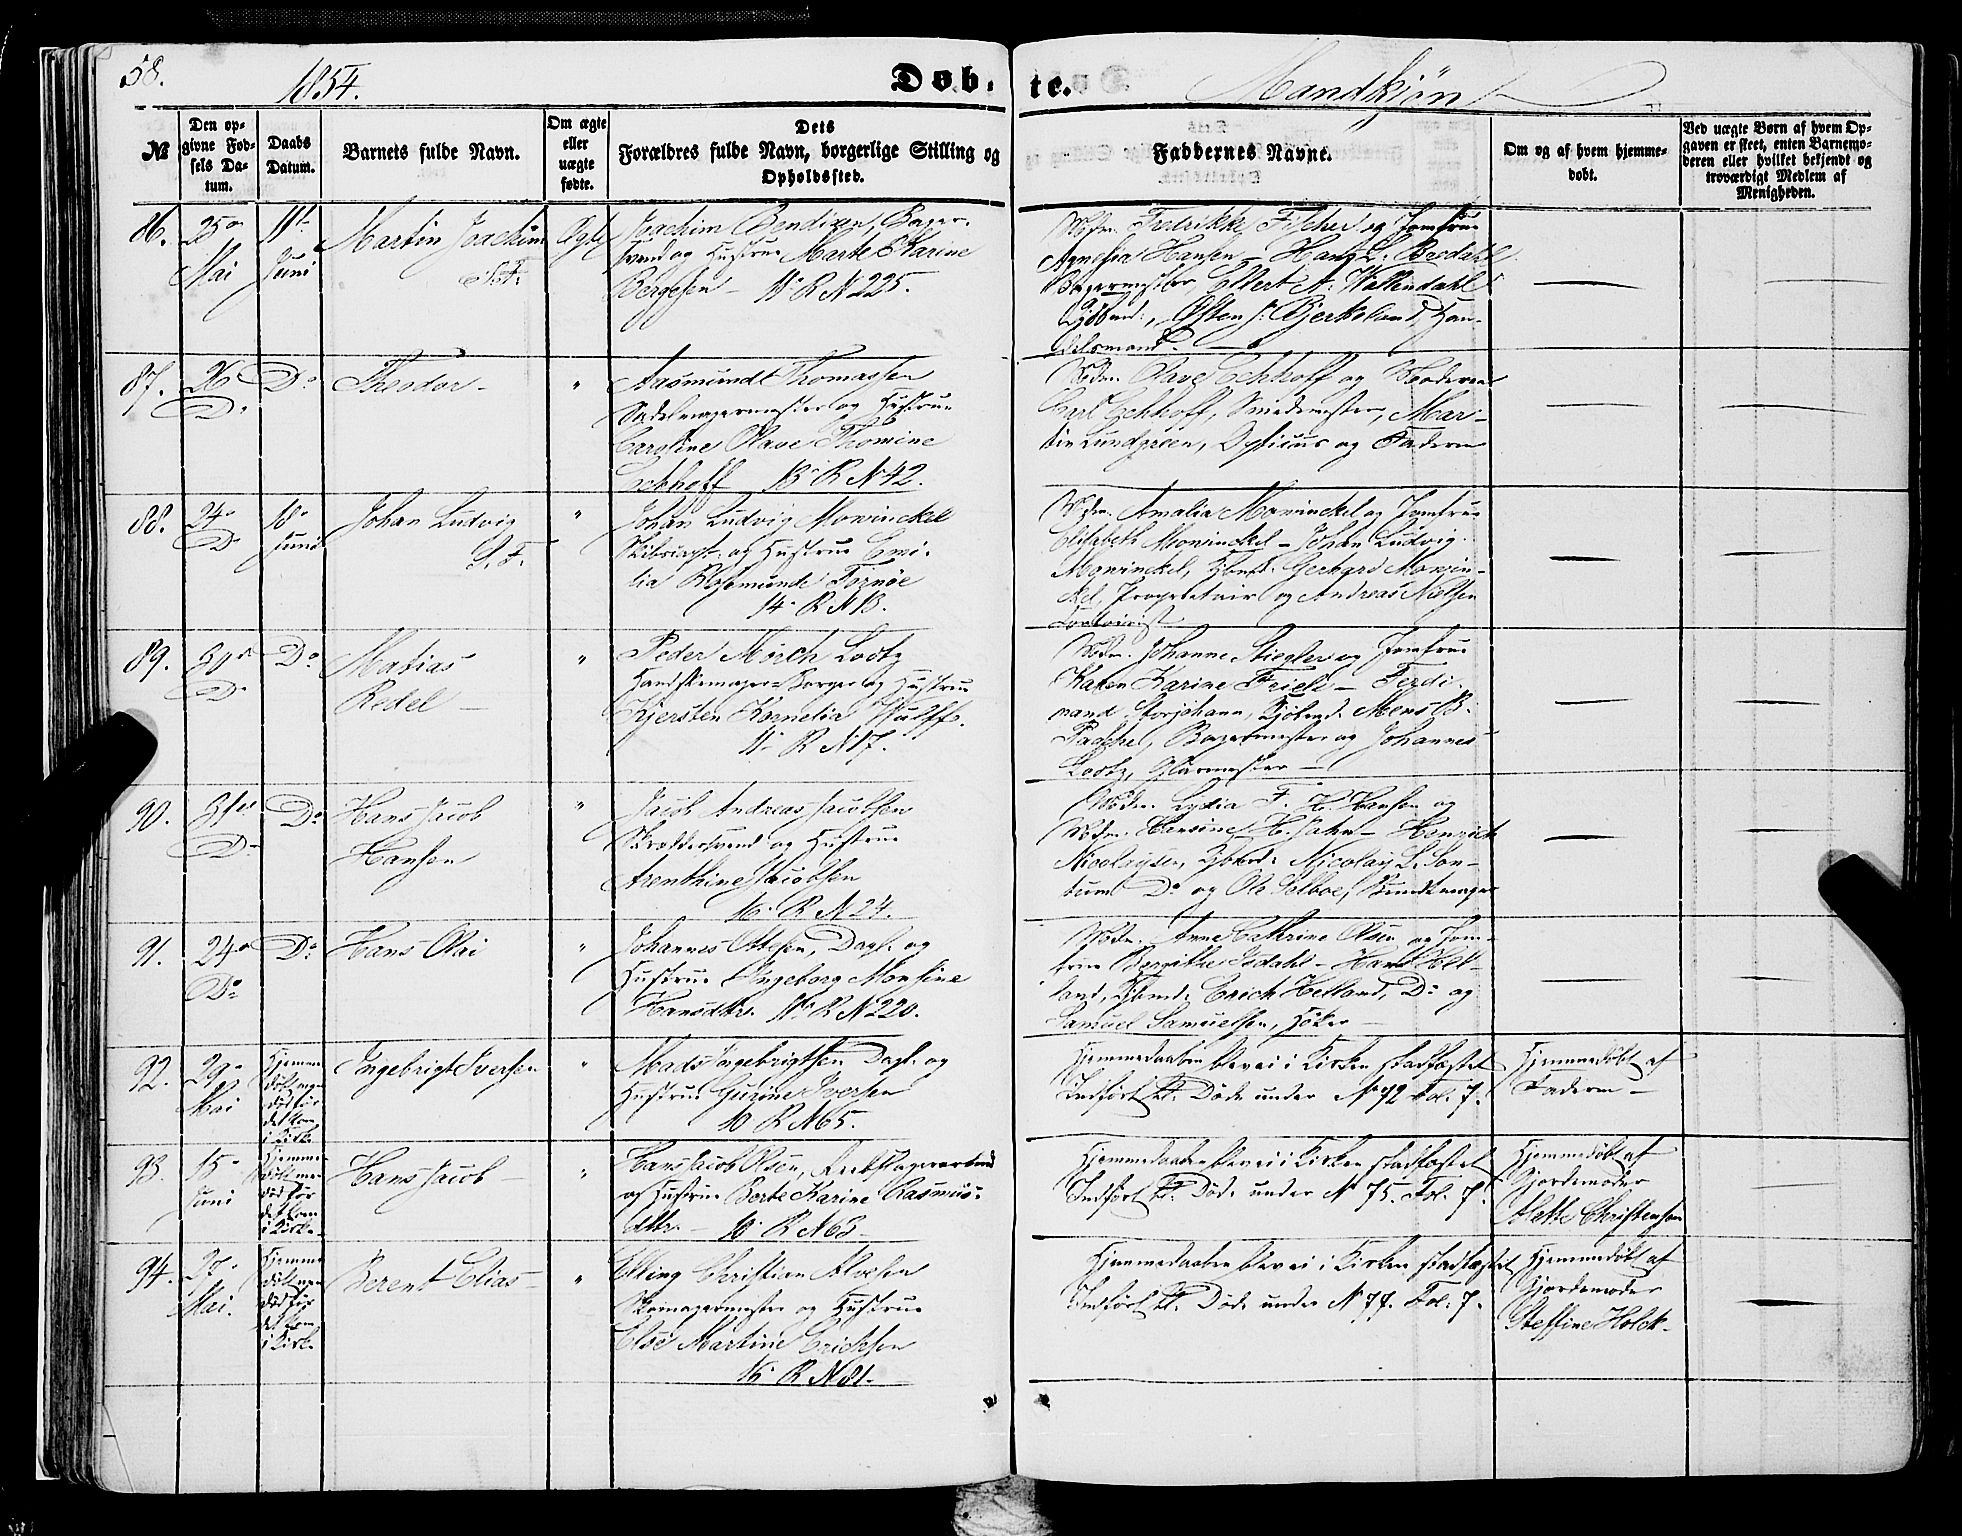 58.
1854.
Døb-
te.
Mandkjøn
№
Den op-
givne Fød-
sels Da-
tum.
Daabs
Datum.
Barnets fulde Navn.
Om ægte
eller
uægte
fødte.
Dets
Forældres fulde Navn, borgerlige Stilling og
Opholdssted.
Faddernes Navne.
Om og af hvem hjemme-
døbt.
Ved uægte Børn af hvem Op-
gaven er skeet, enten Barnemo-
deren eller hvilket bekjendt og
troværdigt Medlem af
Menigheden.
86.
25
Mai
11te
Juni
Martin Joachim
S. F.
Ægte
Joachim Bendixen, Bager-
svend og Hustrue Marte Karine
Bergesen - 11. R N 225.
Mdm. Fredrikke Fischer og Jomfrue
Agnesia Hansen - Hans L. Bredahl
Bagermester, Ellert A. Wallendahl
Kjøbmd:, Osten J. Bjerkeland, Han-
delsmand -
87.
26
Do
Do
Theodor -
"
Aasmundt Thomassen
Sadelmagermester og Hustrue
Caroline Olave Thomine
Eckhoff 13. R N 42.
Mdm. Olave Eckhoff og Moderen
Carl Eckhoff, Smedemester, Mar-
tin Lundgreen, Opticus og Faderen
88.
24
Do
18
Juni
Johan Ludvig
S. F.
"
Johan Ludvig Mowinckel
Skibscapt. og Hustrue Emi-
lia Rosamunde Tornøe
14. R N 13.
Mdm. Amalia Mowinckel og Jomfrue
Elisabeth Mowinckel - Johan Ludvig
Mowinckel, Kjbmd. Gerhard Mowin-
ckel, Proprietair og Andreas Nielsen
89.
30
Do
Do
Matias
Redel -
"
Peder Mørch Lootz
Handskemager-Borger og Hustrue
Kjersten Kornelia Wulff.
11. R N 17.
Mdm. Johanne Stiegler og Jomfrue
Karen Karine Friele - Ferdi-
nand Storjohann, Kjøbmd. Mens B.
Paasche, Bagermester og Johannes
Lootz, Glarmester -
90.
31te
Do
Do
Hans Jacob
Hansen
"
Jacob Andreas Jacobsen
Skreddersvend og Hustrue
Arenthine Jacobsen
16. R N 24.
Mdm. Lydia F. H. Hansen og
Mdm. Hansine H. Jahn - Henrich
Nicolaysen, Kjbmd. Nicolay L. Son-
tum Do og Ole Selboe, Bundtmager
91.
24
Do
Do
Hans Olai
"
Johannes Ottesen, Dagk. og
Hustrue Ingeborg Monsine
Hansdtr. 11. R N 220.
Mdm. Anne Cathrine Olsen og Jom-
frue Bergithe Isdahl - Hans Hel-
land, Kjbmd. Erich Helland, Do og
Samuel Samuelsen, Høker -
92.
29
Mai
Hjemme
døbt men
død før
det kom
i Kirke
Ingebrigt Iversen
"
Mads Ingebrigtsen Dagk. og
Hustrue Gurine Iversen
10 R N 65.
Hjemmedaaben blev ei i Kirken stadfæstet
Indført bl. Døde under N 72 Fol. 7.
Hjemmedøbt af
Faderen -
93.
15
Juni
Hjemme
døbt men
død før
det kom
i Kirke
Hans Jacob -
"
Hans Jacob Olsen, Rebslagersvend
og Hustrue Berte Karine Rasmus-
dtr. - 10. R N 63 -
Hjemmedaaben blev ei i Kirken stadfæstet
Indført bl. Døde under N 75. Fol. 7.
Hjemmedøbt af
Gjordemoder
Alette Christensen
94.
27
Mai.
Hjemme
døbt men
død før
det kom
i Kirke
Berent Elias -
"
Elling Christian Alvsen
Skomagermester og Hustrue
Else Martine Erichsen
16. R N 81.
Hjemmedaaben blev ei i Kirken stadfæstet
Indført bl. Døde under N 77. Fol. 7.
Hjemmedøbt af
Gjordemoder
Steffine Holck -